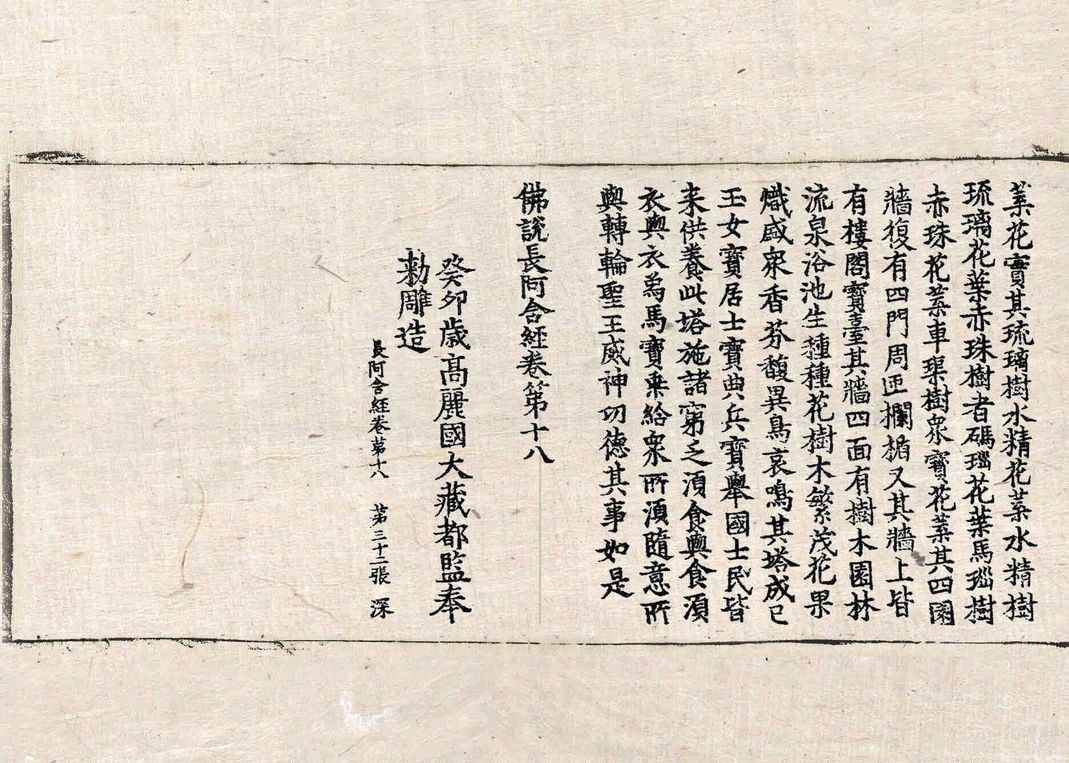 葉花寶其琉璃樹水精花葉水精樹
琉璃花葉赤珠樹者碼瑙花葉馬瑙樹
赤珠花葉車𤦲樹衆寶花葉其四園
牆復有四門周匝欄楯又其牆上皆
有樓閣寶臺其牆四面有樹木園林
流泉浴池生種種花樹木繁茂花果
熾盛衆香芬馥異鳥哀鳴其塔成已
玉女寶居士寶典兵寶舉國士民皆
来供養此塔施諸窮乏湏食與食湏
衣與衣爲馬寶乘給衆所湏隨意所
與轉輪聖王威神功德其事如是
佛說長阿含經卷第十八
癸卯歲高麗國大藏都監奉
勅雕造
長阿含經卷第十八 第三十二張 深